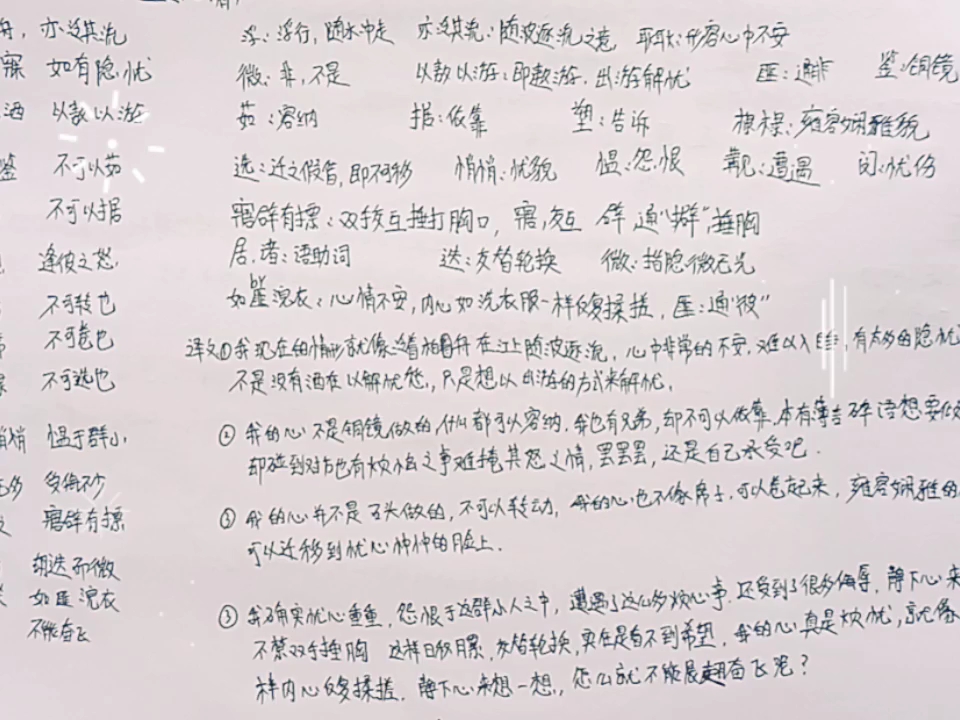 舟，亦泛其流
寐 如有隐忧
酒 以敖以游
鉴 不可以茹
不可以据
逢彼之怒
不可转也
不可卷也
不可选也
悄悄 愠于群小
多 受侮不少
寤辟有摽
胡迭而微
如匪浣衣
不能奋飞
浮：浮行，随水冲走 亦泛其流：随波逐流之意 耿耿：形容心中不安
微：非，不是 以敖以游：即敖游，出游解忧 匪：通非 鉴：铜镜
茹：容纳 据：依靠 塑：告诉 棣棣：雍容娴雅貌
选：迁之假音，即不可移 悄悄：忧貌 愠：怨恨 觏：遭遇 闵：忧伤
寤辟有摽：双手交互捶打胸口，寤，交互 辟 通“擗”，捶胸
居，诸：语助词 迭：交替轮换 微：指隐微无光
如匪浣衣：心情不安，内心如洗衣服一样反复揉搓，匪：通“彼”
译文①我现在的情形就像坐着柏舟在江上随波逐流，心中非常的不安，难以入睡，有太多的隐忧
不是没有酒在以解忧愁，只是想以出游的方式来解忧，
② 我的心不是铜镜做的，什么都可以容纳，我也有兄弟，却不可以依靠，本有言碎语想要
却碰到对方也有烦恼之事难掩其怒之情，罢罢罢，还是自己承受吧．
③ 我的心并不是石头做的，不可以转动，我的心也不像席子，可以卷起来，雍容娴雅的
可以迁移到忧心忡忡的脸上．
③ 我确实忧心重重，怨恨于这群小人之中，遭遇了这么多烦心事，还受到了很多侮辱，静下心来
不禁双手捶胸 这样日积月累，交替轮换，实在是看不到希望，我的心真是烦忧，就像
样内心反复揉搓，静下心来想一想，怎么就不能展翅奋飞呢？